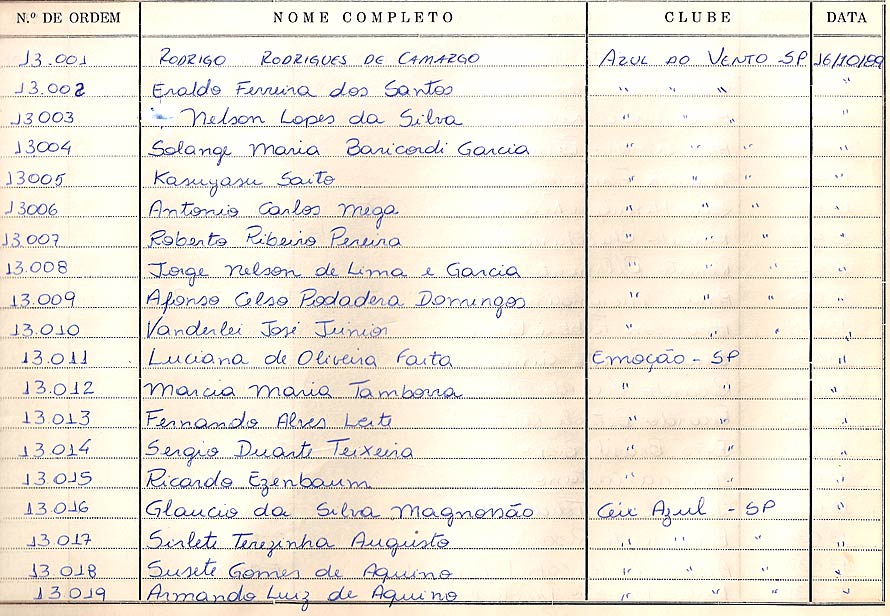 N.º DE ORDEM NOME COMPLETO CLUBE DATA
13.001 RODRIGO RODRIGUES DE CAMARGO AZUL DO VENTO SP 16/10/89
13.002 Eraldo Ferreira dos Santos " " " "
13003 Nelson Lopes da Silva " " " "
13004 Solange Maria Baricordi Garcia " " " "
13005 Kasuyasu Saito " " " "
13006 Antonio Carlos Mega " " " "
13.007 Roberto Ribeiro Pereira " " " "
13.008 Jorge Nelson de Lima e Garcia " " " "
13.009 Afonso Celso Podadera Domingos " " " "
13.010 Vanderlei José Junior " " " "
13.011 Luciana de Oliveira Faita Emoção - SP "
13.012 Marcia Maria Tamborra " " "
13.013 Fernando Alves Leite " " "
13.014 Sergio Duarte Teixeira " " "
13.015 Ricardo Ezenbaum " " "
13.016 Glaucio da Silva Magnossão Ceú Azul - SP "
13.017 Sirlete Terezinha Augusto " " " "
13.018 Susete Gomes de Aquino " " " "
13.019 Armando Luiz de Aquino " " " "